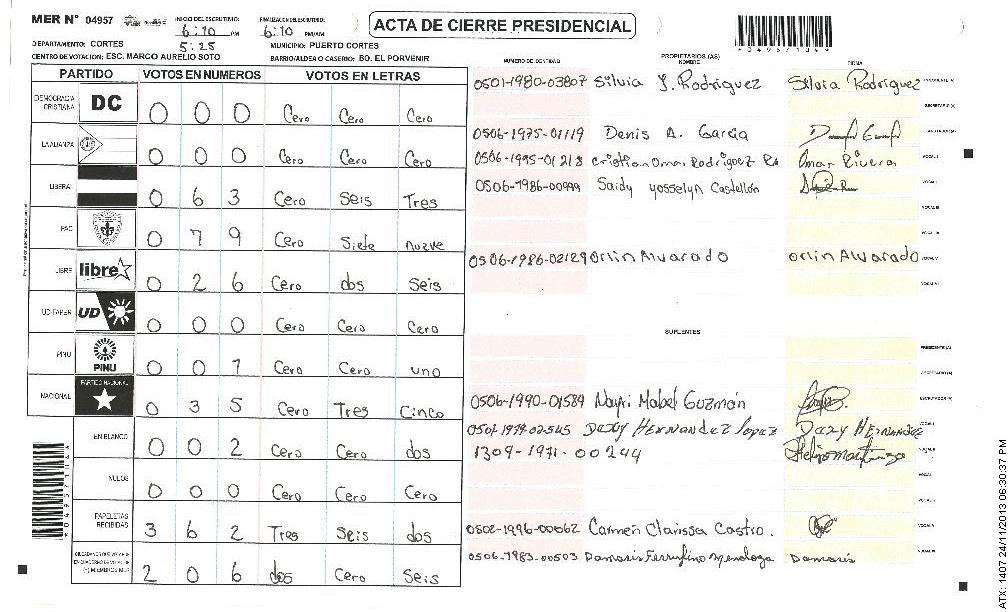 MER N° 04957 INICIO DEL ESCRUTINIO: 6:10 PM FINALIZACION DEL ESCRUTINIO: 6:10 PM/AM ACTA DE CIERRE PRESIDENCIAL
5:25
DEPARTAMENTO: CORTES MUNICIPIO: PUERTO CORTES
CENTRO DE VOTACION: ESC. MARCO AURELIO SOTO BARRIO/ALDEA O CASERIO: BD. EL PORVENIR
NUMERO DE IDENTIDAD PROPIETARIOS (AS) NOMBRE FIRMA
PARTIDO VOTOS EN NUMEROS VOTOS EN LETRAS
DEMOCRACIA CRISTIANA DC 0 0 0 Cero Cero Cero
LA ALIANZA 0 0 0 Cero Cero Cero
LIBERAL 0 6 3 Cero Seis Tres
PAC 0 7 9 Cero Siete nueve
LIBRE libre 0 2 6 Cero dos Seis
UD-FAPER UD 0 0 0 Cero Cero Cero
PINU PINU 0 0 1 Cero Cero uno
NACIONAL PARTIDO NACIONAL 0 3 5 Cero Tres Cinco
EN BLANCO 0 0 2 Cero Cero dos
NULOS 0 0 0 Cero Cero Cero
PAPELETAS RECIBIDAS 3 6 2 Tres Seis dos
2 0 6 dos Cero Seis
0501-1980-03807 Silvia J. Rodriguez Silvia Rodriguez PRESIDENTE (A)
SECRETARIO (A)
0506-1975-01119 Denis A. Garcia ESCRUTADOR (A)
0506-1995-01218 Cristian Omar Rodriguez Omar Rivera VOCAL I
0506-1986-00999 Saidy Yosselyn Castellón VOCAL II
VOCAL III
VOCAL IV
0506-1986-02129 Orlin Alvarado Orlin Alvarado VOCAL V
VOCAL VI
SUPLENTES
PRESIDENTE (A)
SECRETARIO (A)
0506-1990-01589 Nayri Mabel Guzmán ESCRUTADOR (A)
0501-1979-02545 Daxy Hernandez Lopez Daxy Hernandez
1309-1971-00244
0502-1996-00062 Carmen Clarissa Castro.
0506-1983-00503 Damaris Ferrufino Mendoza Damaris
ATX: 1407 24/11/2013 06:30:37 PM